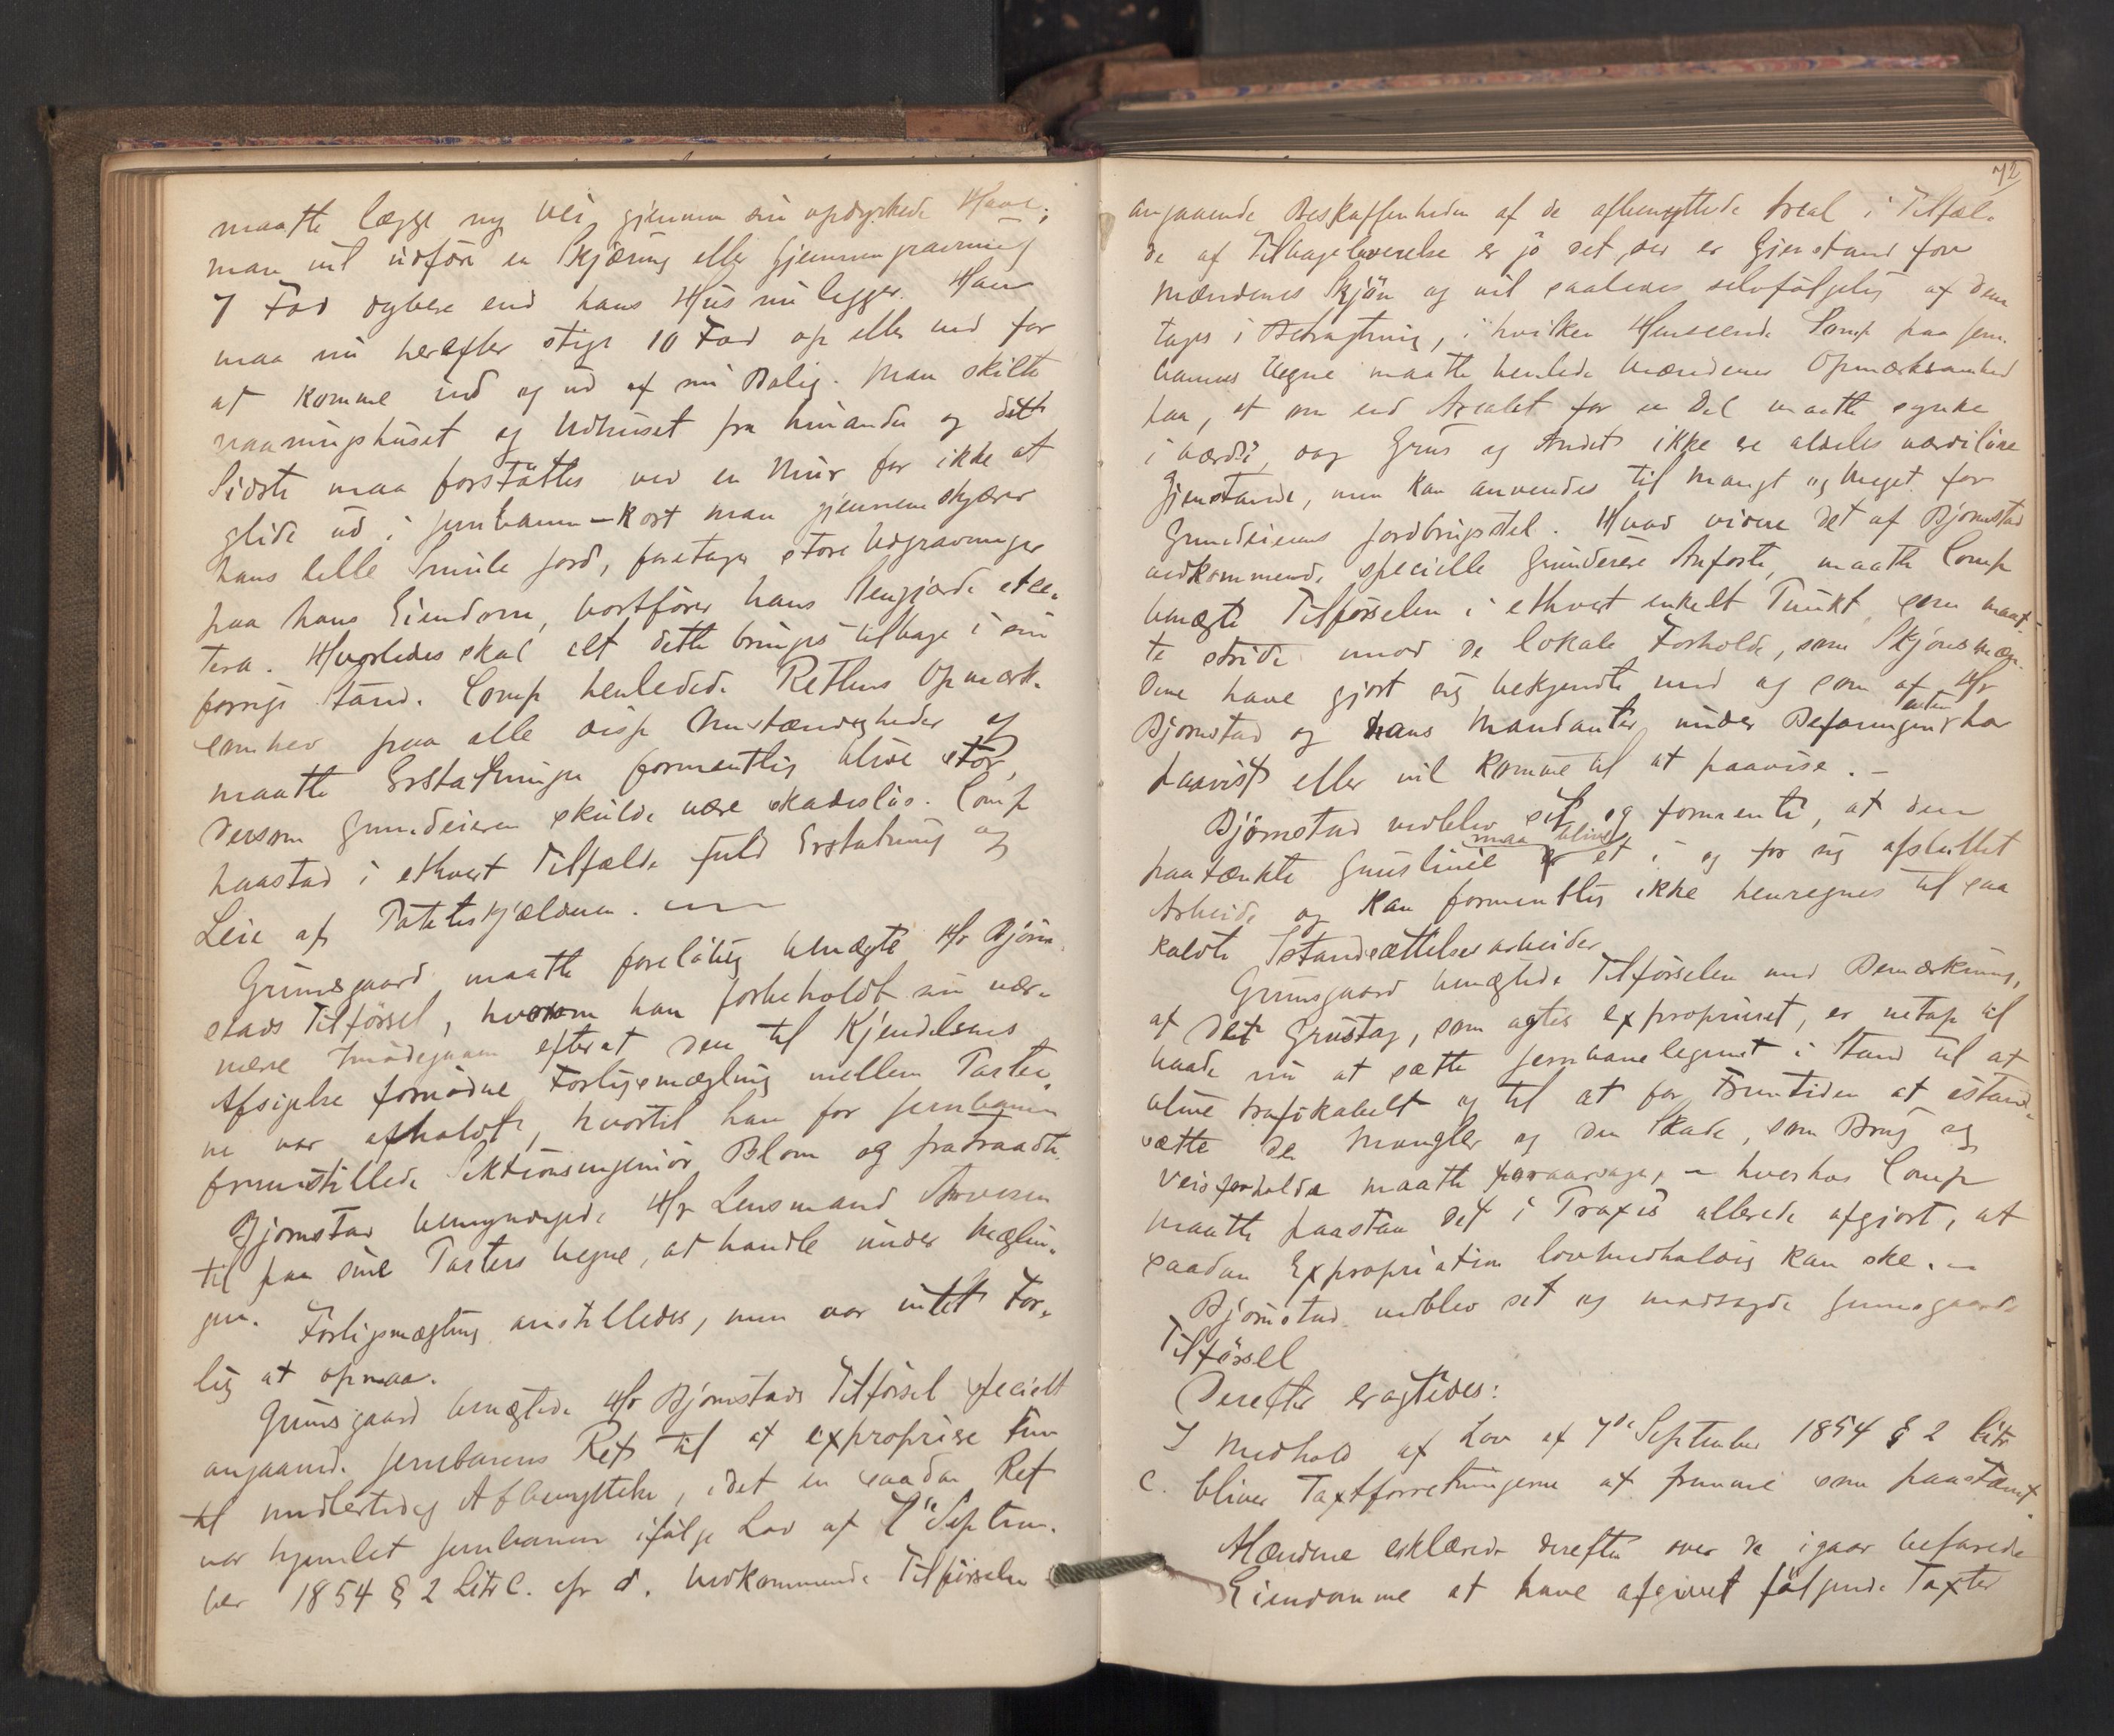 maatte lægge ny Vei gjennem sin opdyrkede Have;
man vil udføre en Skjæring eller Gjennemgravning
7 Fod dybere end hans Hus nu ligger. Han
maa nu herefter stige 10 Fod op eller ned for
at komme ind og ud af sin Bolig. Man skilte
vaaningshuset og Udhuset fra hinanden og dette
Sidste maa forstøttes ved en Mur for ikke at
glide ud i Jernbanen – kort man gjennemskjærer
hans lille Smule Jord, foretager store Udgravninger
paa hans Eiendom, bortfører hans Stengjærde etce-
tera. Hvorledes skal alt dette bringes tilbage i sin
forrige Stand. Comp henledede Rettens Opmærk-
somhed paa alle disse Omstændigheder og
maatte Erstatningen formentlig blive stor,
dersom Grundeieren skulde være skadesløs. Comp
paastod i ethvert Tilfælde fuld Erstatning og
Leie af Potetskjælderen.
Grimsgaard maatte foreløbig benægte Hr Bjørn-
stads Tilførsel, hvorom han forbeholdt sin nær-
mere Imødegaaen efterat den til Kjendelsens
Afsigelse fornødne Forligsmægling mellem Parter-
ne var afholdt, hvortil han for Jernbanen
fremstillede Sektionsingeniør Blom og fratraadte.
Bjørnstad bemyndigede Hr Lensmand Arvesen
til paa sine Parters Vegne, at handle under Mæglin-
gen. Forligsmægling anstilledes, men var intet For-
lig at opnaa.
Grimsgaard benægtede Hr Bjørnstads Tilførsel specielt
angaaende Jernbanens Ret til at expropriere kun
til midlertidig Afbenyttelse, idet en saadan Ret
var hjemlet Jernbanen ifølge Lov af 7de Septem-
ber 1854 § 2 Litr C. cfr d. Vedkommende Tilførselen
72
angaaende Beskaffenheden af de afbenyttede Areal i Tilfæl-
de af Tilbageleverelse er jo det, der er Gjenstand for
Mændenes Skjøn og vil saaledes selvfølgelig af dem
tages i Betragtning, i hvilken Henseende Comp paa Jern-
banens Vegne maatte henlede Mændenes Opmærksomhed
paa, at om end Arealet for en Del maatte synke
i Værdi, dog Grus og Andet ikke er aldeles værdiløse
Gjenstande, men kan anvendes til Mangt og Meget for
Grundeierens Jordbrugsstel. Hvad videre det af Bjørnstad
vedkommende specielle Grundeiere Anførte, maatte Comp
benægte Tilførselen i ethvert enkelt Punkt, som maat-
te stride mod de lokale Forholde, som Skjønsmæn-
dene have gjort sig bekjendte med og som af Hr
Bjørnstad og hans Mandanter under Befaringen enten har
paavist eller vil komme til at paavise. –
Bjørnstad vedblev sit og formente, at den
paatænkte Gruslinie maa blive et i og for sig afsluttet
Arbeide og kan formentlig ikke henregnes til saa
kaldte Istandsættelsesarbeider
Grimsgaard benægtede Tilførselen med Bemærkning,
at det Grustag, som agtes exproprieret, er netop til
baade nu at sætte Jernbanelegemet i Stand til at
blive trafikabelt og til at for Fremtiden at istand-
sætte de Mangler og den Skade, som Brug og
Veirforholde maatte foraarsage, – hvorhos Comp
maatte paastaa det i Praxis allerede afgjort, at
saadan Expropriation lovmedholdig kan ske. –
Bjørnstad vedblev sit og modsagde Grimsgaards
Tilførsel
Derefter eragtedes:
I Medhold af Lov af 7de September 1854 § 2 Litr
C. bliver Taxtforretningerne at fremme som paastævnt.
Mændene erklærede derefter over de igaar befarede
Eiendomme at have afgivet følgende Taxter